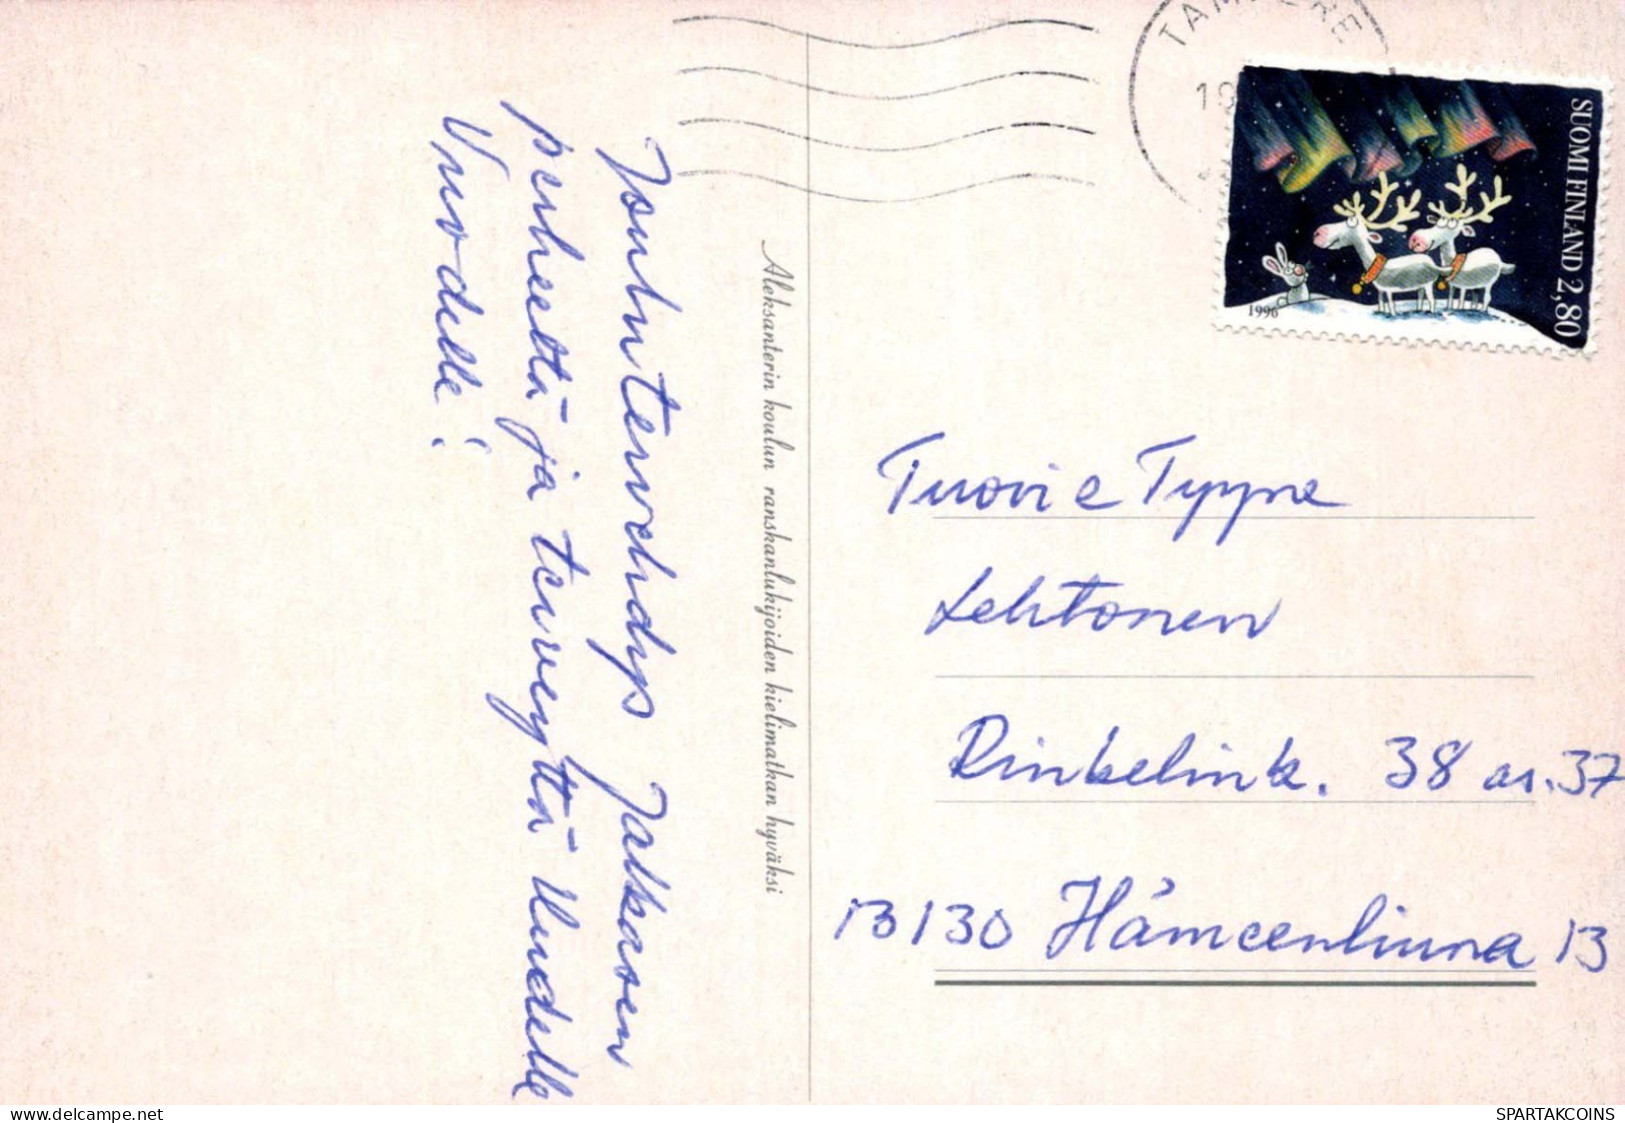 Jouluntervehdys Jalkasen
perheeltä ja terveyttä Uudelle
Vuodelle!
Aleksanterin koulun ranskanlukijoiden kielimatkan hyväksi
TAMPERE
19
SUOMI FINLAND 2,80
1996
Tuovi e Tyyne
Lehtonen
Rinkelink. 38 as. 37
13130 Hämeenlinna 13
delcampe.net
SPARTAKCOINS